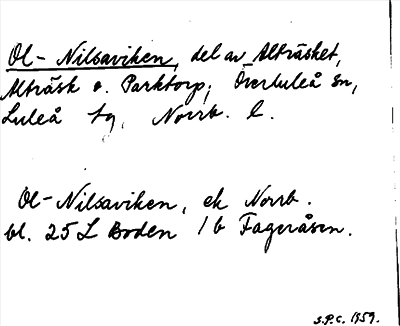 Ol-Nilsaviken, del av Alträsket,
Alträsk o. Parktorp, Överluleå sn,
Luleå tg, Norrb. l.
Ol-Nilsaviken, ek Norrb.
bl. 25 L Boden 1b Fageråsen.
S.P.C. 1959.